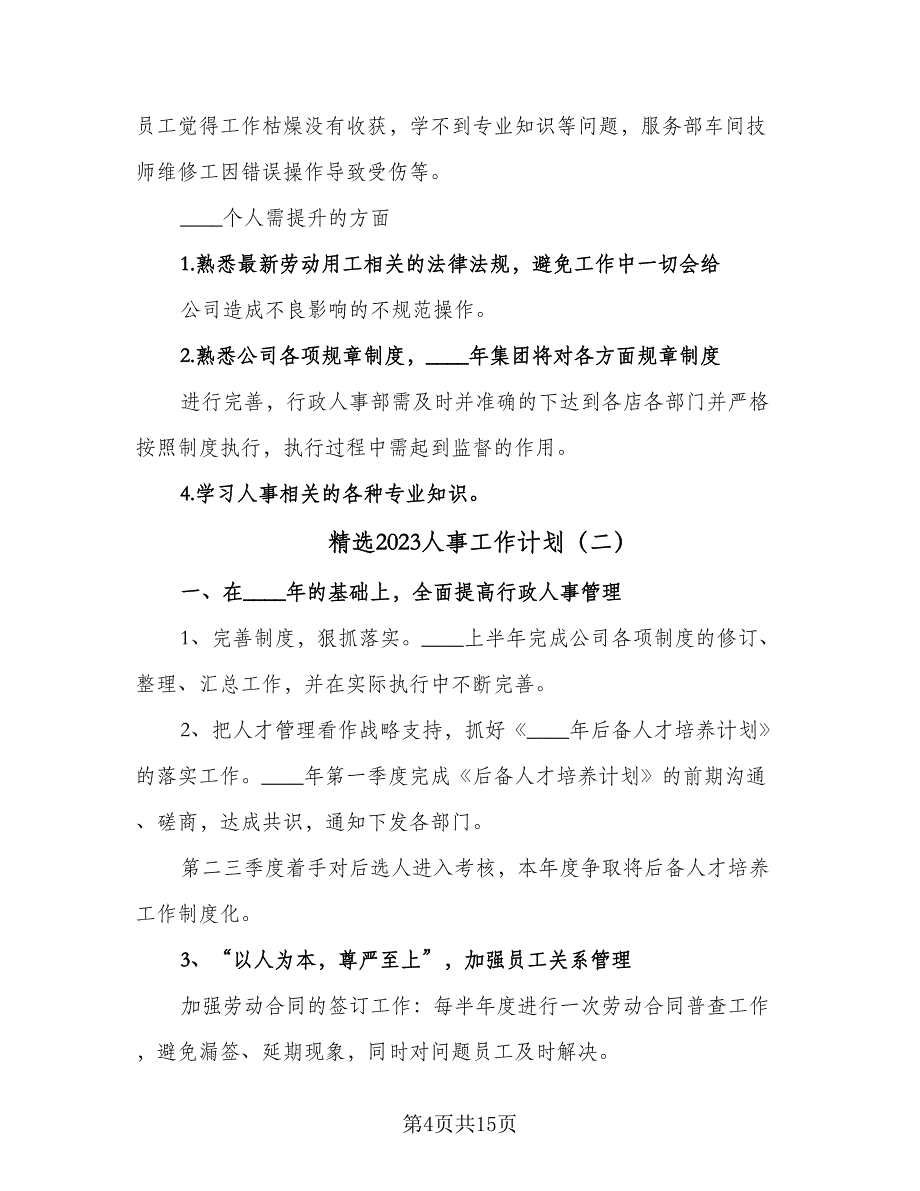 员工觉得工作枯燥没有收获，学不到专业知识等问题，服务部车间技
师维修工因错误操作导致受伤等。
____个人需提升的方面
1.熟悉最新劳动用工相关的法律法规，避免工作中一切会给
公司造成不良影响的不规范操作。
2.熟悉公司各项规章制度，____年集团将对各方面规章制度
进行完善，行政人事部需及时并准确的下达到各店各部门并严格
按照制度执行，执行过程中需起到监督的作用。
4.学习人事相关的各种专业知识。
精选2023人事工作计划（二）
一、在____年的基础上，全面提高行政人事管理
1、完善制度，狠抓落实。____上半年完成公司各项制度的修订、
整理、汇总工作，并在实际执行中不断完善。
2、把人才管理看作战略支持，抓好《____年后备人才培养计划》
的落实工作。____年第一季度完成《后备人才培养计划》的前期沟通
、磋商，达成共识，通知下发各部门。
第二三季度着手对后选人进入考核，本年度争取将后备人才培养
工作制度化。
3、“以人为本，尊严至上”，加强员工关系管理
加强劳动合同的签订工作：每半年度进行一次劳动合同普查工作
，避免漏签、延期现象，同时对问题员工及时解决。
第4页共15页